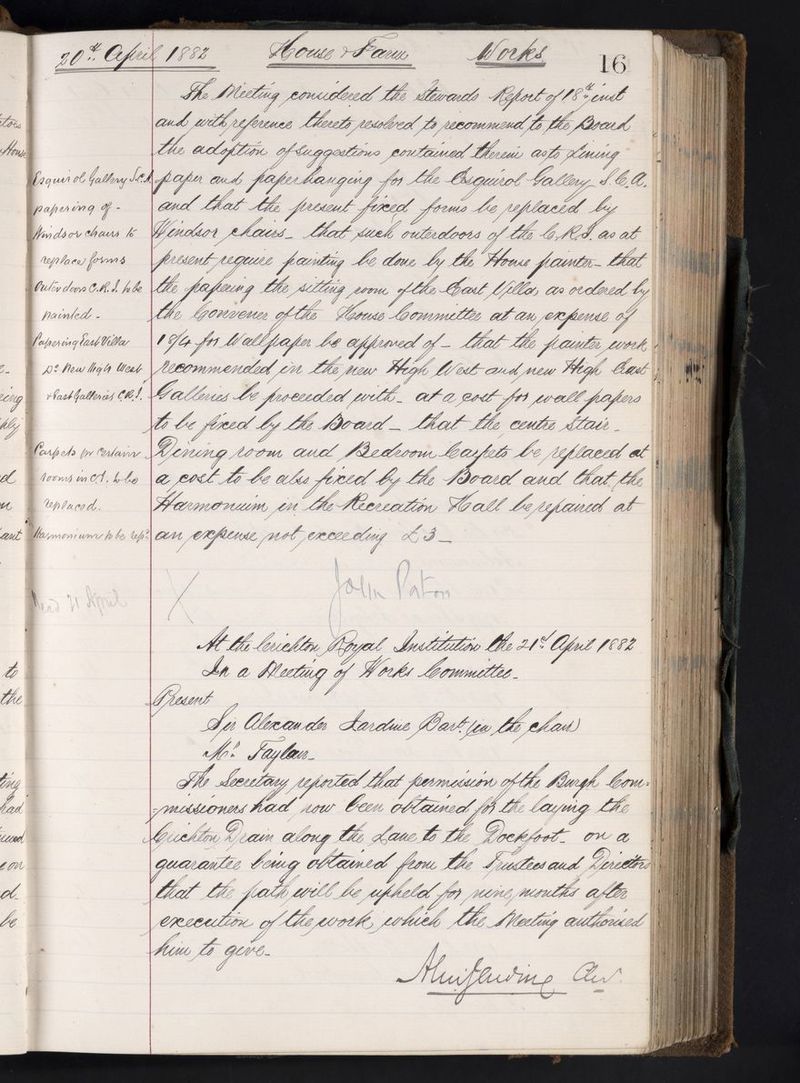 20th April 1882 House & Farm Works 16
The Meeting considered the Stewards Report of 18th inst
and with reference thereto resolved to recommend to the Board
the adoption of suggestions contained therein as to Lining
Esquirol Gallery S.C.A.
paper and paperhanging for the Esquirol Gallery S.C.A.
papering of -
and that the present fixed forms be replaced by
Windsor chairs to
Windsor chairs - that such outerdoors of the C.R.I. as at
replace forms
present require painting be done by the House painter - that
Outer doors C.R.I. to be
the papering the sitting room of the East Villa as ordered by
painted -
the Convener of the House Committee at an expense of
Papering East Villa
for Wallpaper be approved of - that the painter work
Do New High West
recommended in the new High West and new High East
& East Galleries C.R.I.
Galleries be proceeded with - at a cost for wall papers
to be fixed by the Board - that the centre Stair -
Carpets for certain
Dining room and Bedroom Carpets be replaced at
rooms in to be
a cost to be also fixed by the Board and that the
replaced.
Harmonium in the Recreation Hall be repaired at
Harmonium to be repd.
an expense not exceeding £3 -
John Paton
21 April X
At the Crichton Royal Institution the 21st April 1882
In a Meeting of Works Committee -
Present
Sir Alexander Jardine Bart. (in the chair)
Mr.
The Secretary reported that permission of the Burgh Com-
missioners had now been obtained for the laying the
Crichton Drain along the Lane to the Dockfoot - on a
guarantee being obtained from the Trustees and Directors
that the path will be upheld for nine months after
execution of the work, which the Meeting authorised
him to give -